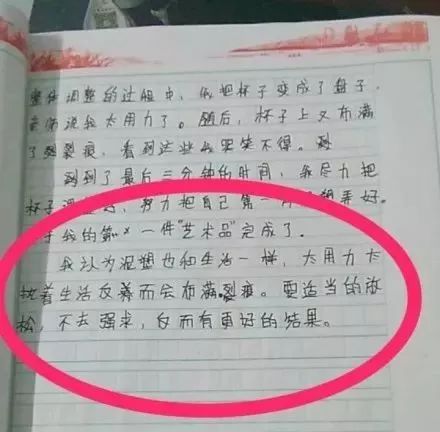 整体调整的过程中，似把杯子变成了盘子，
老师说我太用力了。随后，杯子上又布满
了裂裂痕，看到这些我哭笑不得。到
到到了最后三分钟的时间，我尽力把
杯子 好，努力把自己第一 弄好。
于我的第 一件"艺术品"完成了。
我认为泥塑也和生活一样，太用力大
扰着生活反善而会布满裂痕。要适当的放
松，不去强求，反而有更好的结果。